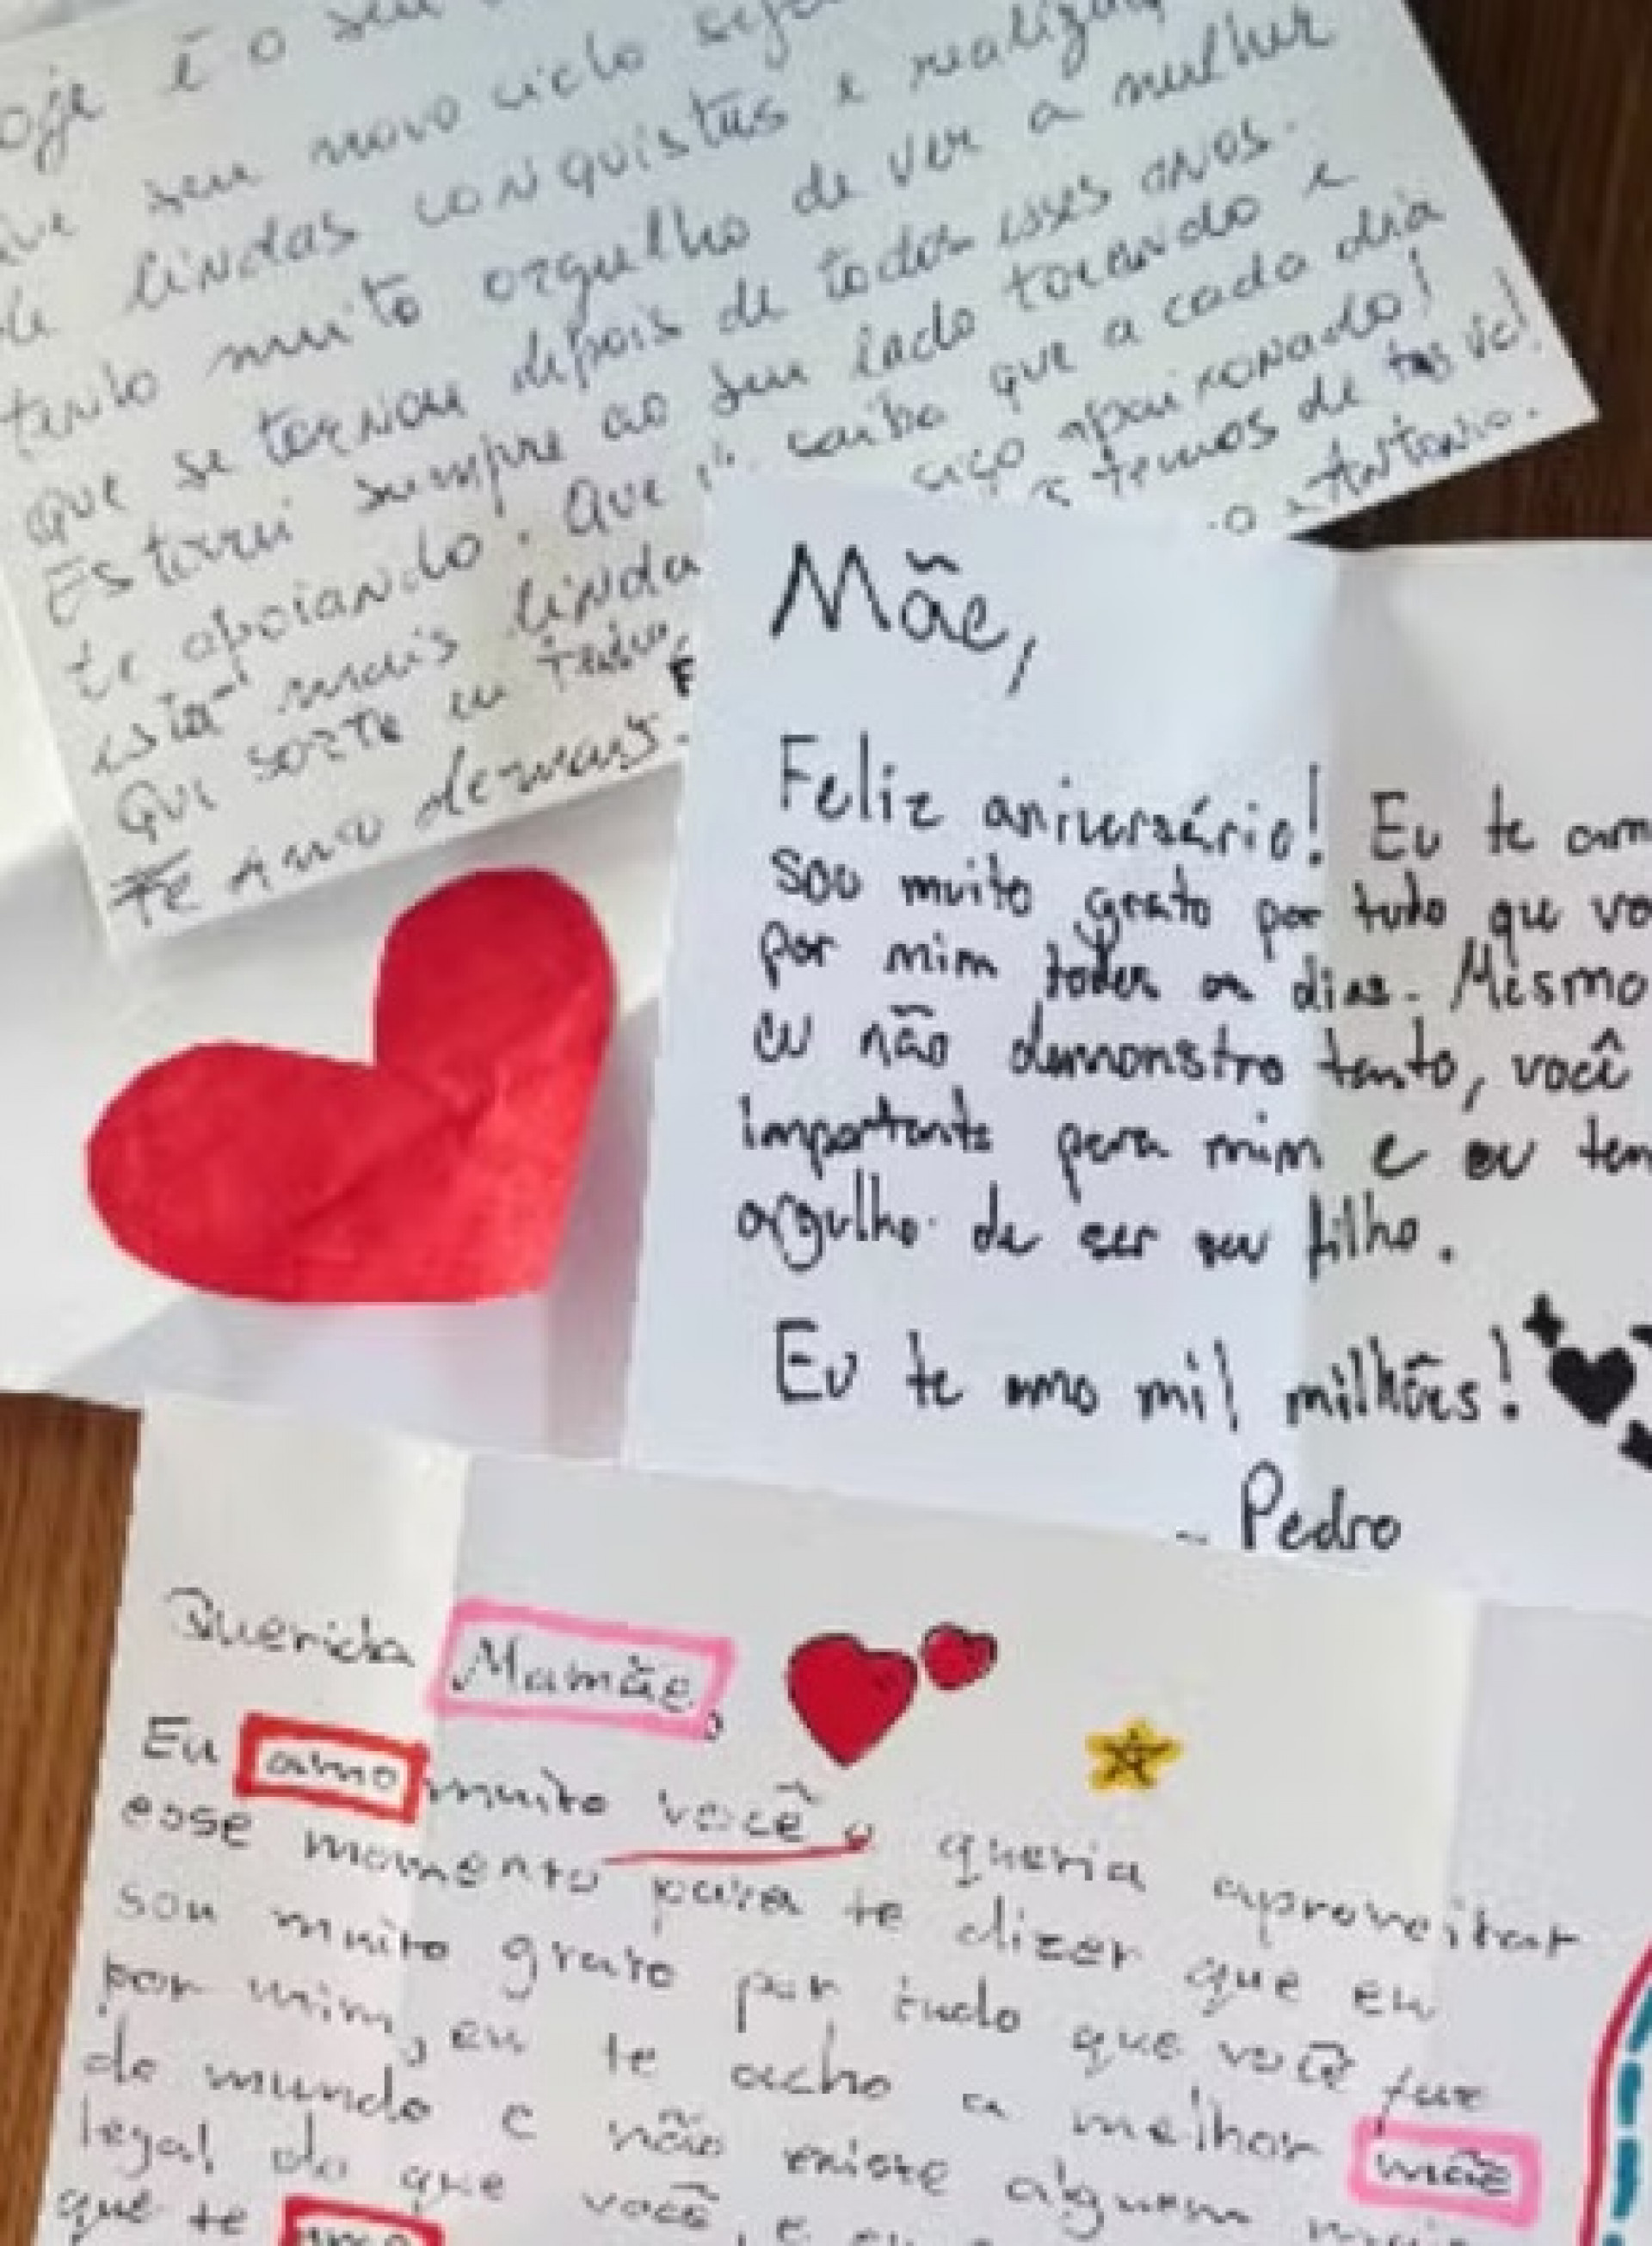 é o seu
seu novo ciclo
lindas conquistas e
tenho muito orgulho de ver a mulher
que se tornou depois de todos esses anos.
Estarei sempre ao seu lado torcendo e
te apoiando. Que saiba que a cada dia
está mais linda apaixonado!
Que sorte temos de
Te amo demais. Antonio.
Mãe,
Feliz aniversário! Eu te am
sou muito grato por tudo que vo
por mim todos os dias. Mesmo
eu não demonstro tanto, você
importante para mim e eu ten
orgulho de ser seu filho.
Eu te amo mil milhões!
- Pedro
Querida Mamãe,
Eu amo muito você, queria aproveitar
esse momento para te dizer que eu
sou muito grato por tudo que você faz
por mim, eu te acho a melhor mãe
do mundo e não existe alguem mais
legal do que você, e eu
que te amo